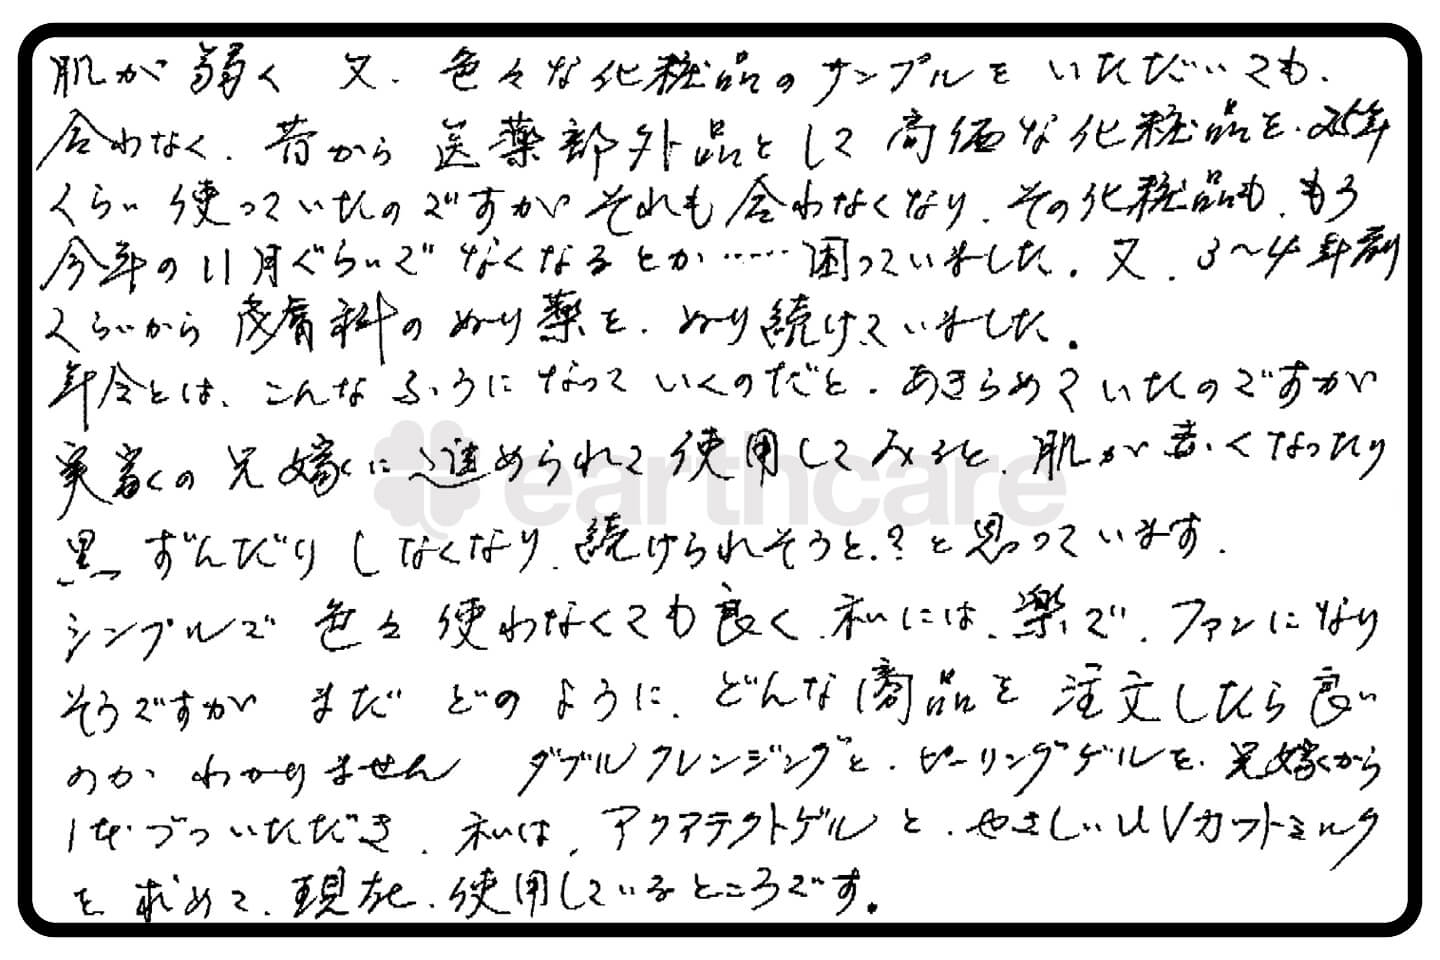 肌が弱く 又、色々な化粧品のサンプルを いただいても、
合わなく、昔から 医薬部外品として 高価な化粧品を、25年
くらい 使っていたのですが それも 合わなくなり、その化粧品も、もう
今年の11月ぐらいで なくなるとか……困っていました。又、3〜4年前
くらいから 皮膚科の ぬり薬を、ぬり続けていました。
年令とは、こんな ふうに なって いくのだと、あきらめていたのですが
実家の 兄嫁に 進められて 使用してみると、肌が 赤くなったり
黒ずんだり しなくなり、続けられそうと?と思っています。
シンプルで 色々 使わなくても良く、私には、楽で、ファンになり
そうですが まだ どのように、どんな 商品を 注文したら 良い
のか わかりません ダブルクレンジングと、ピーリングゲルを、兄嫁から
1本づついただき、私は、アクアテクトゲルと、やさしいUVカットミルク
を 求めて、現在、使用しているところです。
earthcare